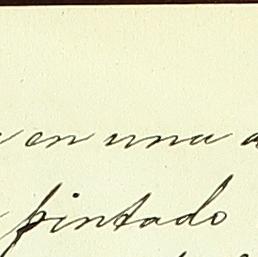 en una
pintado